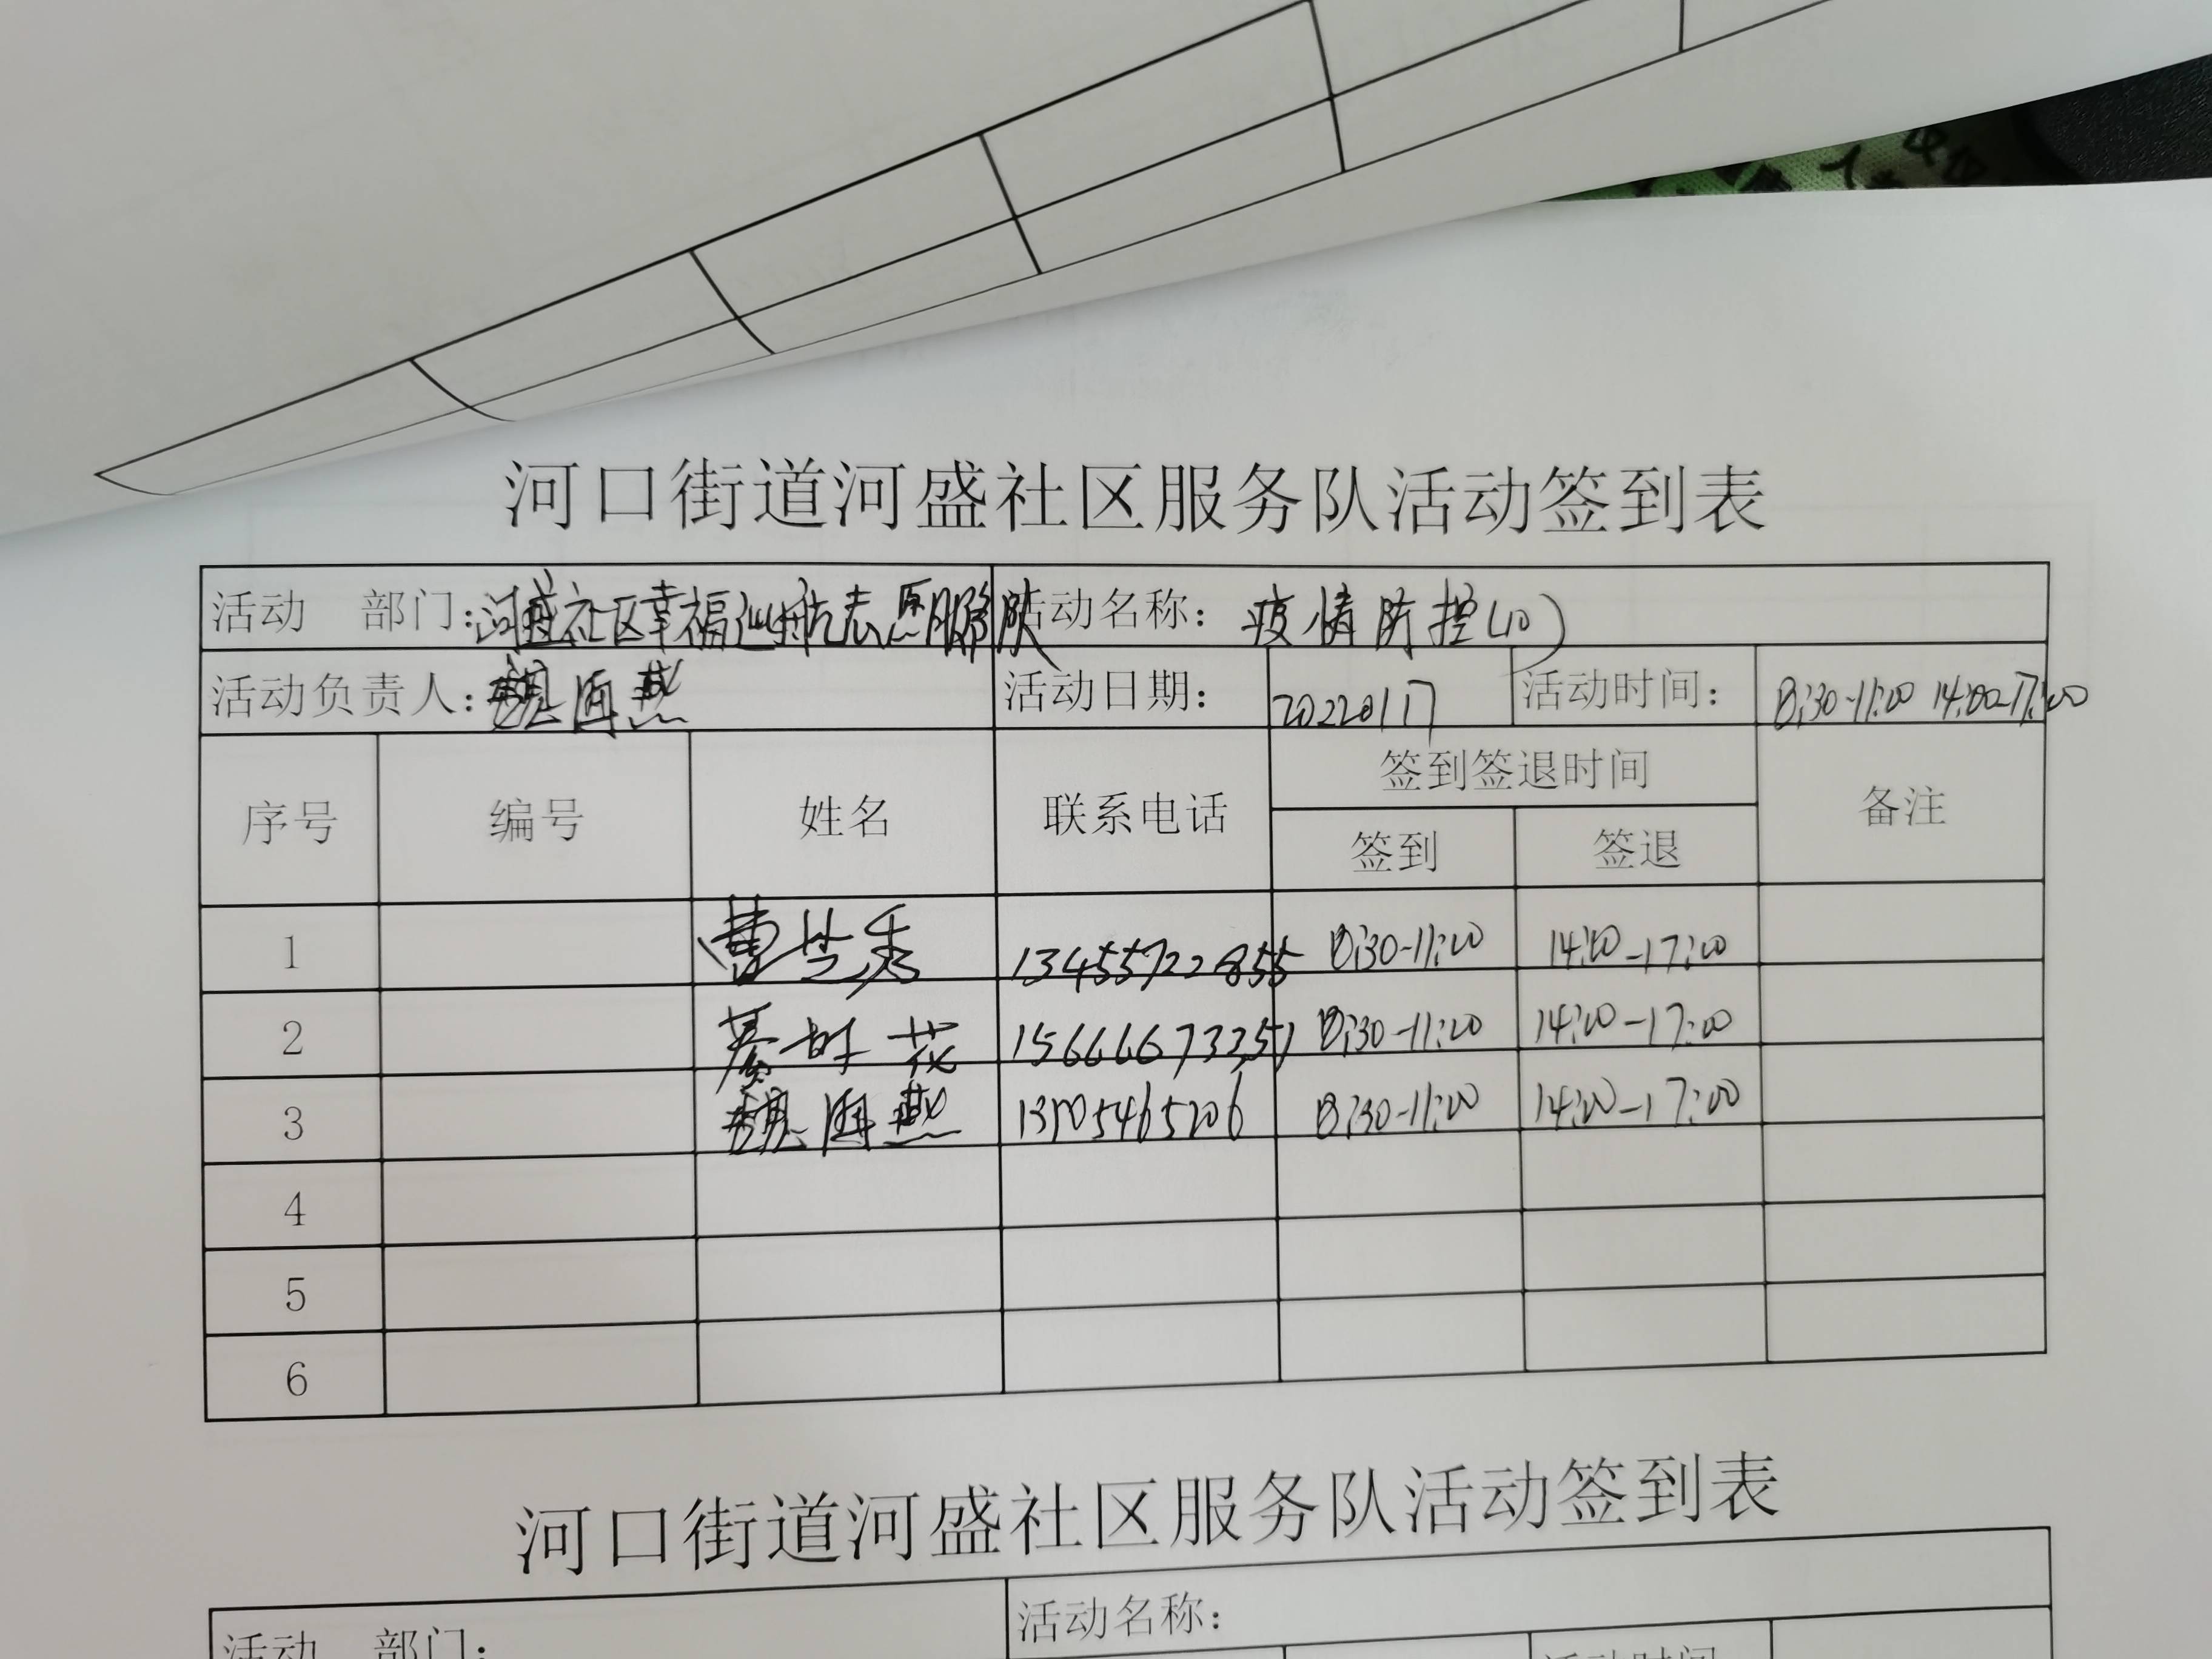 河口街道河盛社区服务队活动签到表
活动 部门：河盛社区幸福巡航志愿服务队 活动名称：疫情防控(10)
活动负责人： 活动日期：20220117 活动时间：8:30-11:00 14:00-17:00
序号 编号 姓名 联系电话 签到签退时间 备注
签到 签退
1 曹芝秀 13455722855 8:30-11:00 14:00-17:00
2 花 15666673351 8:30-11:00 14:00-17:00
3 8:30-11:00 14:00-17:00
4
5
6
河口街道河盛社区服务队活动签到表
活动 部门： 活动名称：
活动时间